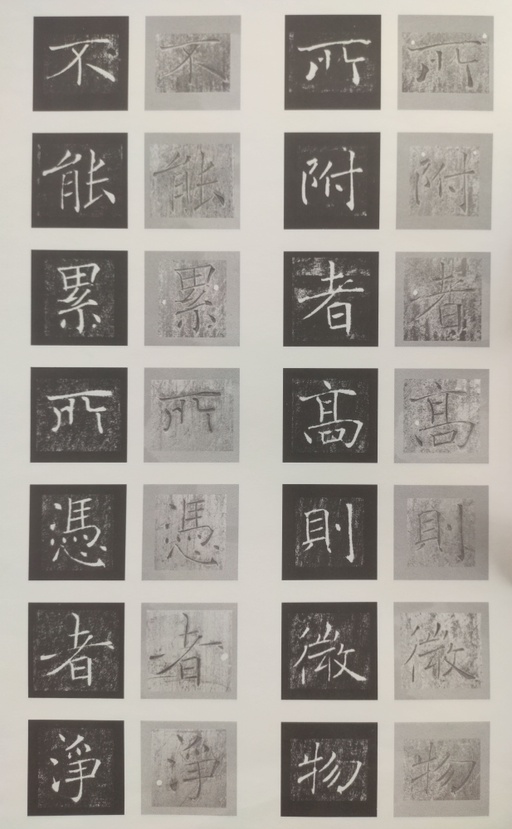 所附者髙則微物
所附者髙則微物
不能累所憑者淨
不能累所憑者淨